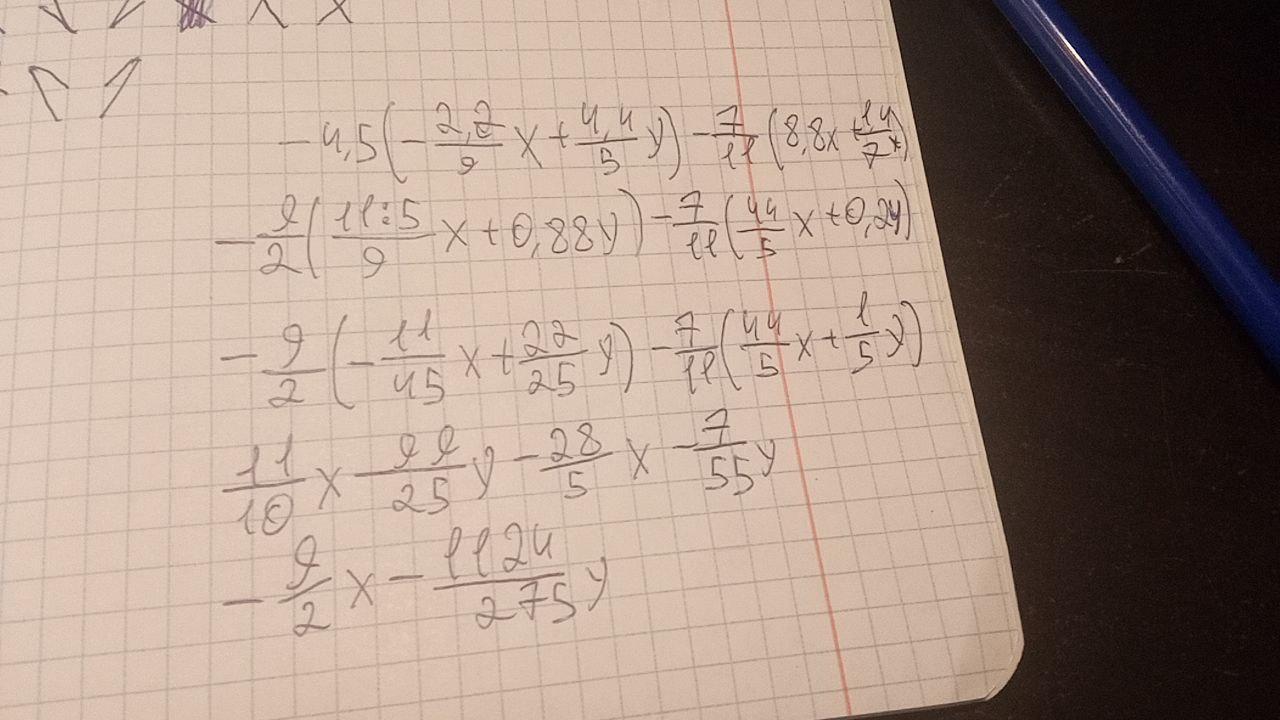 -4,5(-\frac{2,2}{9}x+\frac{4,4}{5}y)-\frac{7}{11}(8,8x+\frac{14}{7})
-\frac{9}{2}(\frac{11:5}{9}x+0,88y)-\frac{7}{11}(\frac{44}{5}x+0,2y)
-\frac{9}{2}(-\frac{11}{45}x+\frac{22}{25}y)-\frac{7}{11}(\frac{44}{5}x+\frac{1}{5}y)
\frac{11}{10}x-\frac{99}{25}y-\frac{28}{5}x-\frac{7}{55}y
-\frac{9}{2}x-\frac{1124}{275}y